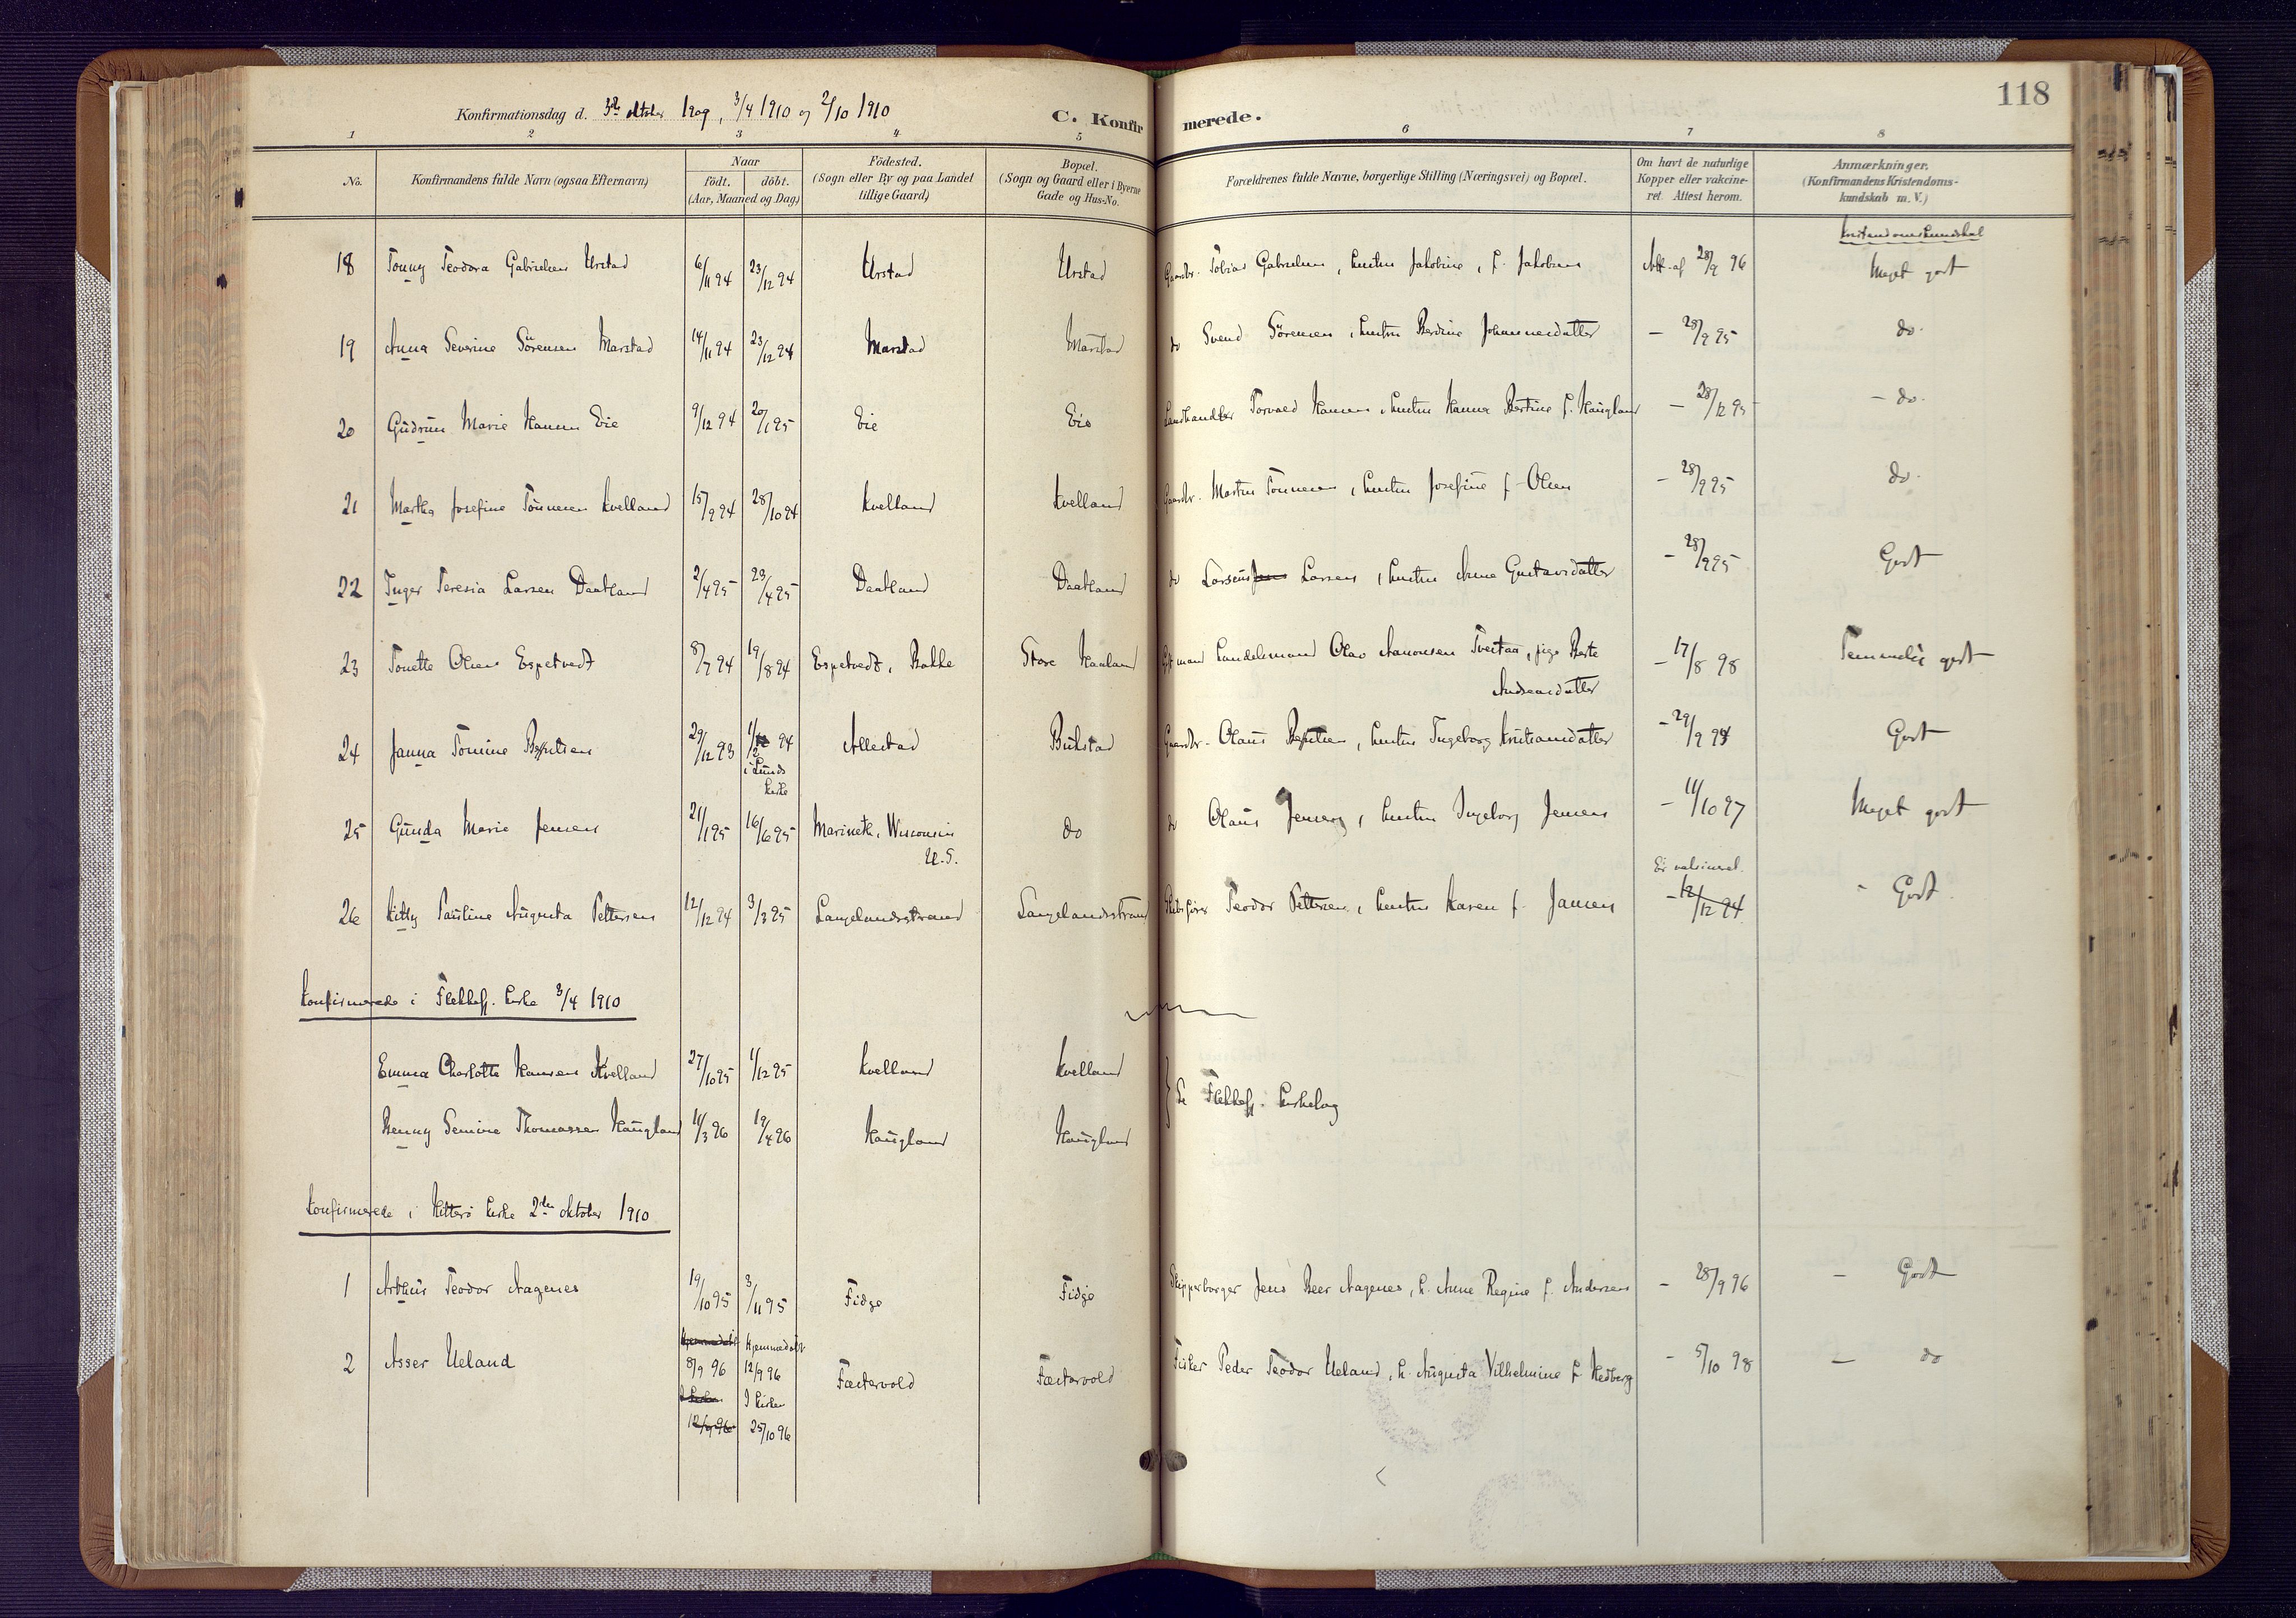 118
Konfirmationsdag d. 3die oktober 1909, 3/4 1910 og 2/10 1910
C. Konfirmerede.
1 2 3 4 5 6 7 8
No. Konfirmandens fulde Navn (ogsaa Efternavn) Naar födt. döbt. (Aar, Maaned og Dag) Födested. (Sogn eller By og paa Landet tillige Gaard) Bopæl. (Sogn og Gaard eller i Byerne Gade og Hus-No. Forældrenes fulde Navne, borgerlige Stilling (Næringsvei) og Bopæl. Om havt de naturlige Kopper eller vakcineret. Attest herom. Anmærkninger, (Konfirmandens Kristendomskundskab m. V.)
Kristendomskundskab
18 Tonny Teodora Gabrielsen Urstad 6/11 94 23/12 94 Urstad Urstad Gaardbr. Tobias Gabrielsen, hustru Jakobine, f. Jakobsen Att. af 28/9 96 Meget godt
19 Anna Severine Sörensen Marstad 14/11 94 23/12 94 Marstad Marstad do Svend Sörensen, hustru Berdine Johannesdatter - 28/9 95 do.
20 Gudrun Marie Hansen Eie 9/12 94 20/1 95 Eie Eie Landhandler Torvald Hansen, hustru Hanna Bertine f. Haugland - 28/12 95 - do.
21 Martha Josefine Tönnesen Kvelland 15/9 94 28/10 94 Kvelland Kvelland Gaardbr. Martin Tönnesen, hustru Josefine f. Olsen - 28/9 95 do.
22 Inger Teresia Larsen Daatland 2/4 95 23/4 95 Daatland Daatland do Larsens Larsen, hustru Anne Gustavsdatter - 28/9 95 Godt
23 Tonette Olsen Espetvedt 8/7 94 19/8 94 Espetvedt, Bakke Store Haaland man Handelsmand Olav Aanonsen Tveitaa, pige Berte - 17/8 98 Temmelig godt
Andreasdatter
24 Janna Tomine Berntsen 29/12 93 1/2 94 Allestad Bukstad Gaardbr. Olaus Berntsen, hustru Ingeborg Kristiansdatter - 29/9 94 Godt
i Lunds
kirke
25 Gunda Marie Jensen 21/1 95 16/6 95 Marinette, Wisconsin do do Olaus Jensen, hustru Ingeborg Jensen - 11/10 97 Meget godt
U.S.
Ei vakcineret.
26 Kitty Pauline Augusta Pettersen 12/12 94 3/3 95 Langelandsstrand Langelandsstrand Skibsfører Teodor Pettersen, hustru Karen f. Jansen - 12/12 94 - Godt.
Konfirmerede i Flekkefj. kirke 3/4 1910
Emma Charlotte Hansen Kvelland 27/10 95 1/12 95 Kvelland Kvelland
Se Flekkefj. kirkebog
Benny Semine Thomassen Haugland 11/3 96 19/4 96 Haugland Haugland
Konfirmerede i Hitterö kirke 2den oktober 1910
1 Arthur Teodor Aagenes 19/10 95 3/11 95 Fidje Fidje Skipperborger Jens Beer Aagenes, h. Anne Regine f. Andersen - 28/9 96 - Godt
Hjemmedöbt Hjemmedöbt
2 Asser Ueland 8/9 96 12/9 96 Fæstervold Fæstervold Fisker Peder Teodor Ueland, h. Augusta Vilhelmine f. Hedberg - 5/10 98 - do
I kirken I kirken
12/9 96 25/10 96